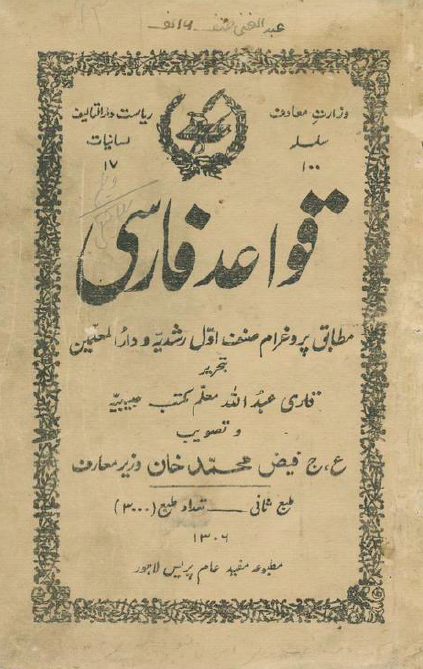 عبدالغنی صنف
وزارت معارف
سلسله
۱۰۰
ریاست دارالتالیف
لسانیات
۱۷
قواعد فارسی
مطابق پروغرام صنف اوّل رشدیه و دارالمعلمین
تحریر
قاری عبدالله معلم مکتب حبیبیه
و تصویب
ع، ج فیض محمّد خان وزیر معارف
طبع ثانی ــ تعداد طبع (۳۰۰۰)
۱۳۰۶
مطبوعه مفید عام پریس لاہور